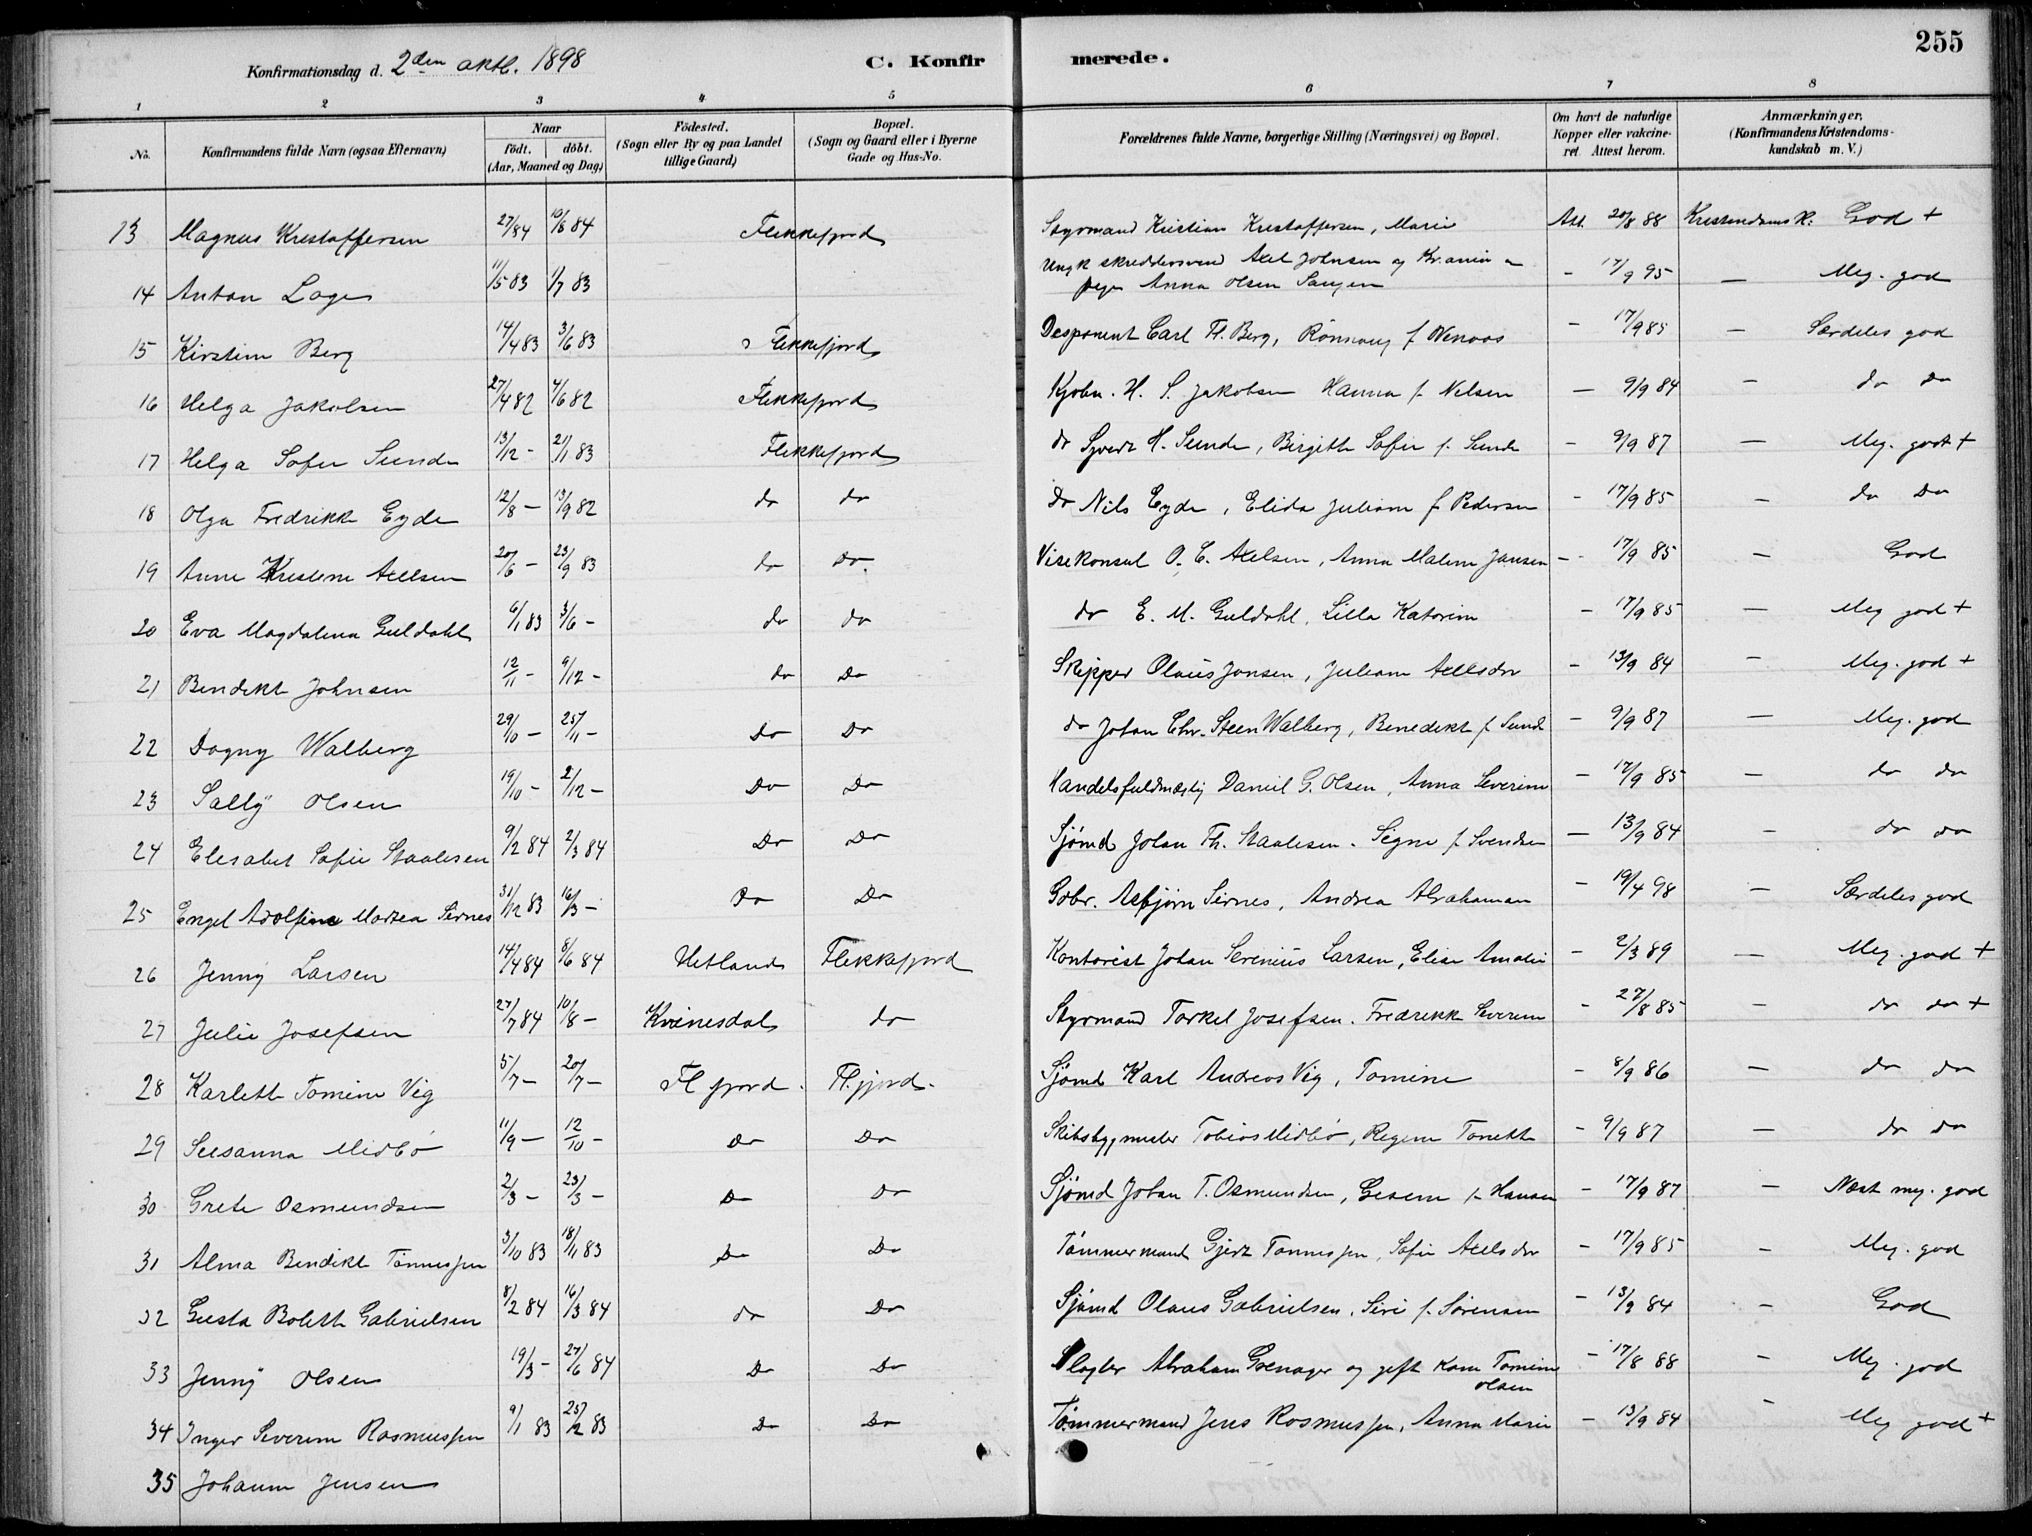 Konfirmationsdag d. 2den oktb. 1898
C. Konfir
merede.
255
1 2 3 4 5 6 7 8
No.
Konfirmandens fulde Navn (ogsaa Efternavn)
Naar
født. døbt.
(Aar, Maaned og Dag)
Fødested.
(Sogn eller By og paa Landet
tillige Gaard)
Bopæl.
(Sogn og Gaard eller i Byerne
Gade og Hus-No.
Forældrenes fulde Navne, borgerlige Stilling (Næringsvei) og Bopæl.
Om havt de naturlige
Kopper eller vakcine-
ret. Attest herom.
Anmærkninger.
(Konfirmandens Kristendoms-
kundskab m. V.)
13 Magnus Kristoffersen 27/84 10/6 84 Flekkefjord Styrmand Kristian Kristoffersen, Marie Att. 20/8 88 Kristendomsk: God +
14 Anton Lage 11/5 83 1/7 83 Ungk skreddersvend Axel Johnsen og
pige Anna Olsen - 17/9 95 — Meg. god
15 Kirstine Berg 14/4 83 3/6 83 Flekkefjord Disponent Carl Fl. Berg, Rønnaug f - 17/9 85 — Særdeles god
16 Helga Jakobsen 27/4 82 4/6 82 Flekkefjord Kjøbm. H. S. Jakobsen Hanna f. Nilsen — 9/9 84 — do do
17 Helga Sofie Sunde 13/12 - 21/1 83 Flekkefjord do Syvert H. Sunde, Birgitte Sofie f. Sunde - 9/9 87 — Meg. godt +
18 Olga Fredrikke Eyde 12/8 — 13/9 82 do do do Nils Eyde, Elida Juliane f Pedersen - 17/9 85 — do do
19 Anne Kristine Axelsen 20/6 — 23/9 83 do do Visekonsul O. C. Axelsen, Anna Malene Jansen - 17/9 85 — God
20 Eva Magdalena Guldahl 6/1 83 3/6 - do do do E. M. Guldahl, Lilla Katorine - 17/9 85 — Meg god +
21 Bendikte Johnsen 12/11 - 9/12 - do do Skipper Olaus Jonsen, Juliane Axelsdtr - 13/9 84 — Meg. god +
22 Dagny Walberg 29/10 — 25/11 — do do do Johan Chr. Steen Walberg, Benedikte f. Sund - 9/9 87 — Meg. god
23 Sally Olsen 19/10 - 2/12 - do do Handelsfuldmægtig Daniel G. Olsen, Anna Severine - 17/9 85 — do do
24 Elisabet Sofie Staalesen 9/2 84 2/3 84 do do Sjømd Johan Th. Staalesen. Signe f. Svendsen — 13/9 84 - do do
25 Engel Adolfine Martea Sirnes 31/12 83 16/3 - do do Gdbr. Asbjørn Sirnes, Andrea Abrahamsen - 19/4 98 — Særdeles god
26 Jenny Larsen 14/4 84 8/6 84 Hetland Flekkefjord Kontorist Johan Serenius Larsen, Elise Amalie - 2/3 89 — Meg. god +
27 Julie Josefsen 27/7 84 10/8 — Kvinesdal do Styrmand Torkel Josefsen. Fredrikke Severine - 27/8 85 — do do +
28 Karlette Tomine Vig 5/7 — 20/7 — Fl fjord Fl.fjord. Sjømd Karl Andreas Vig, Tomine - 8/9 86 — do do
29 Susanna Midbø 11/9 — 12/10 - do do Skibsbygmester Tobias Midbø, Regine Tonette - 9/9 87 — do do
30 Grete Osmundsen 2/3 - 23/3 - do do Sjømd Johan T. Osmundsen, Gesine f. Hansen - 17/9 87 — Næst meg. god
31 Alma Bendikte Tønnessen 3/10 83 18/11 83 do do Tømmermand Gjert Tønnessen, Sofie Axelsdtr - 17/9 85 — Meg. god
32 Gusta Bolette Gabrielsen 8/2 84 16/3 84 do do Sjømd Olaus Gabrielsen, Siri f. Sørensen - 13/9 84 — God
33 Jenny Olsen 19/3 - 27/6 84 do do Slagter Abraham Grenager og gift Kone Tomine
Olsen - 17/8 88 — Meg. god
34 Inger Severine Rasmussen 9/1 83 25/2 83 do do Tømmermand Jens Rasmussen, Anna Marie - 13/9 84 - Meg god +
35 Johanne Jensen